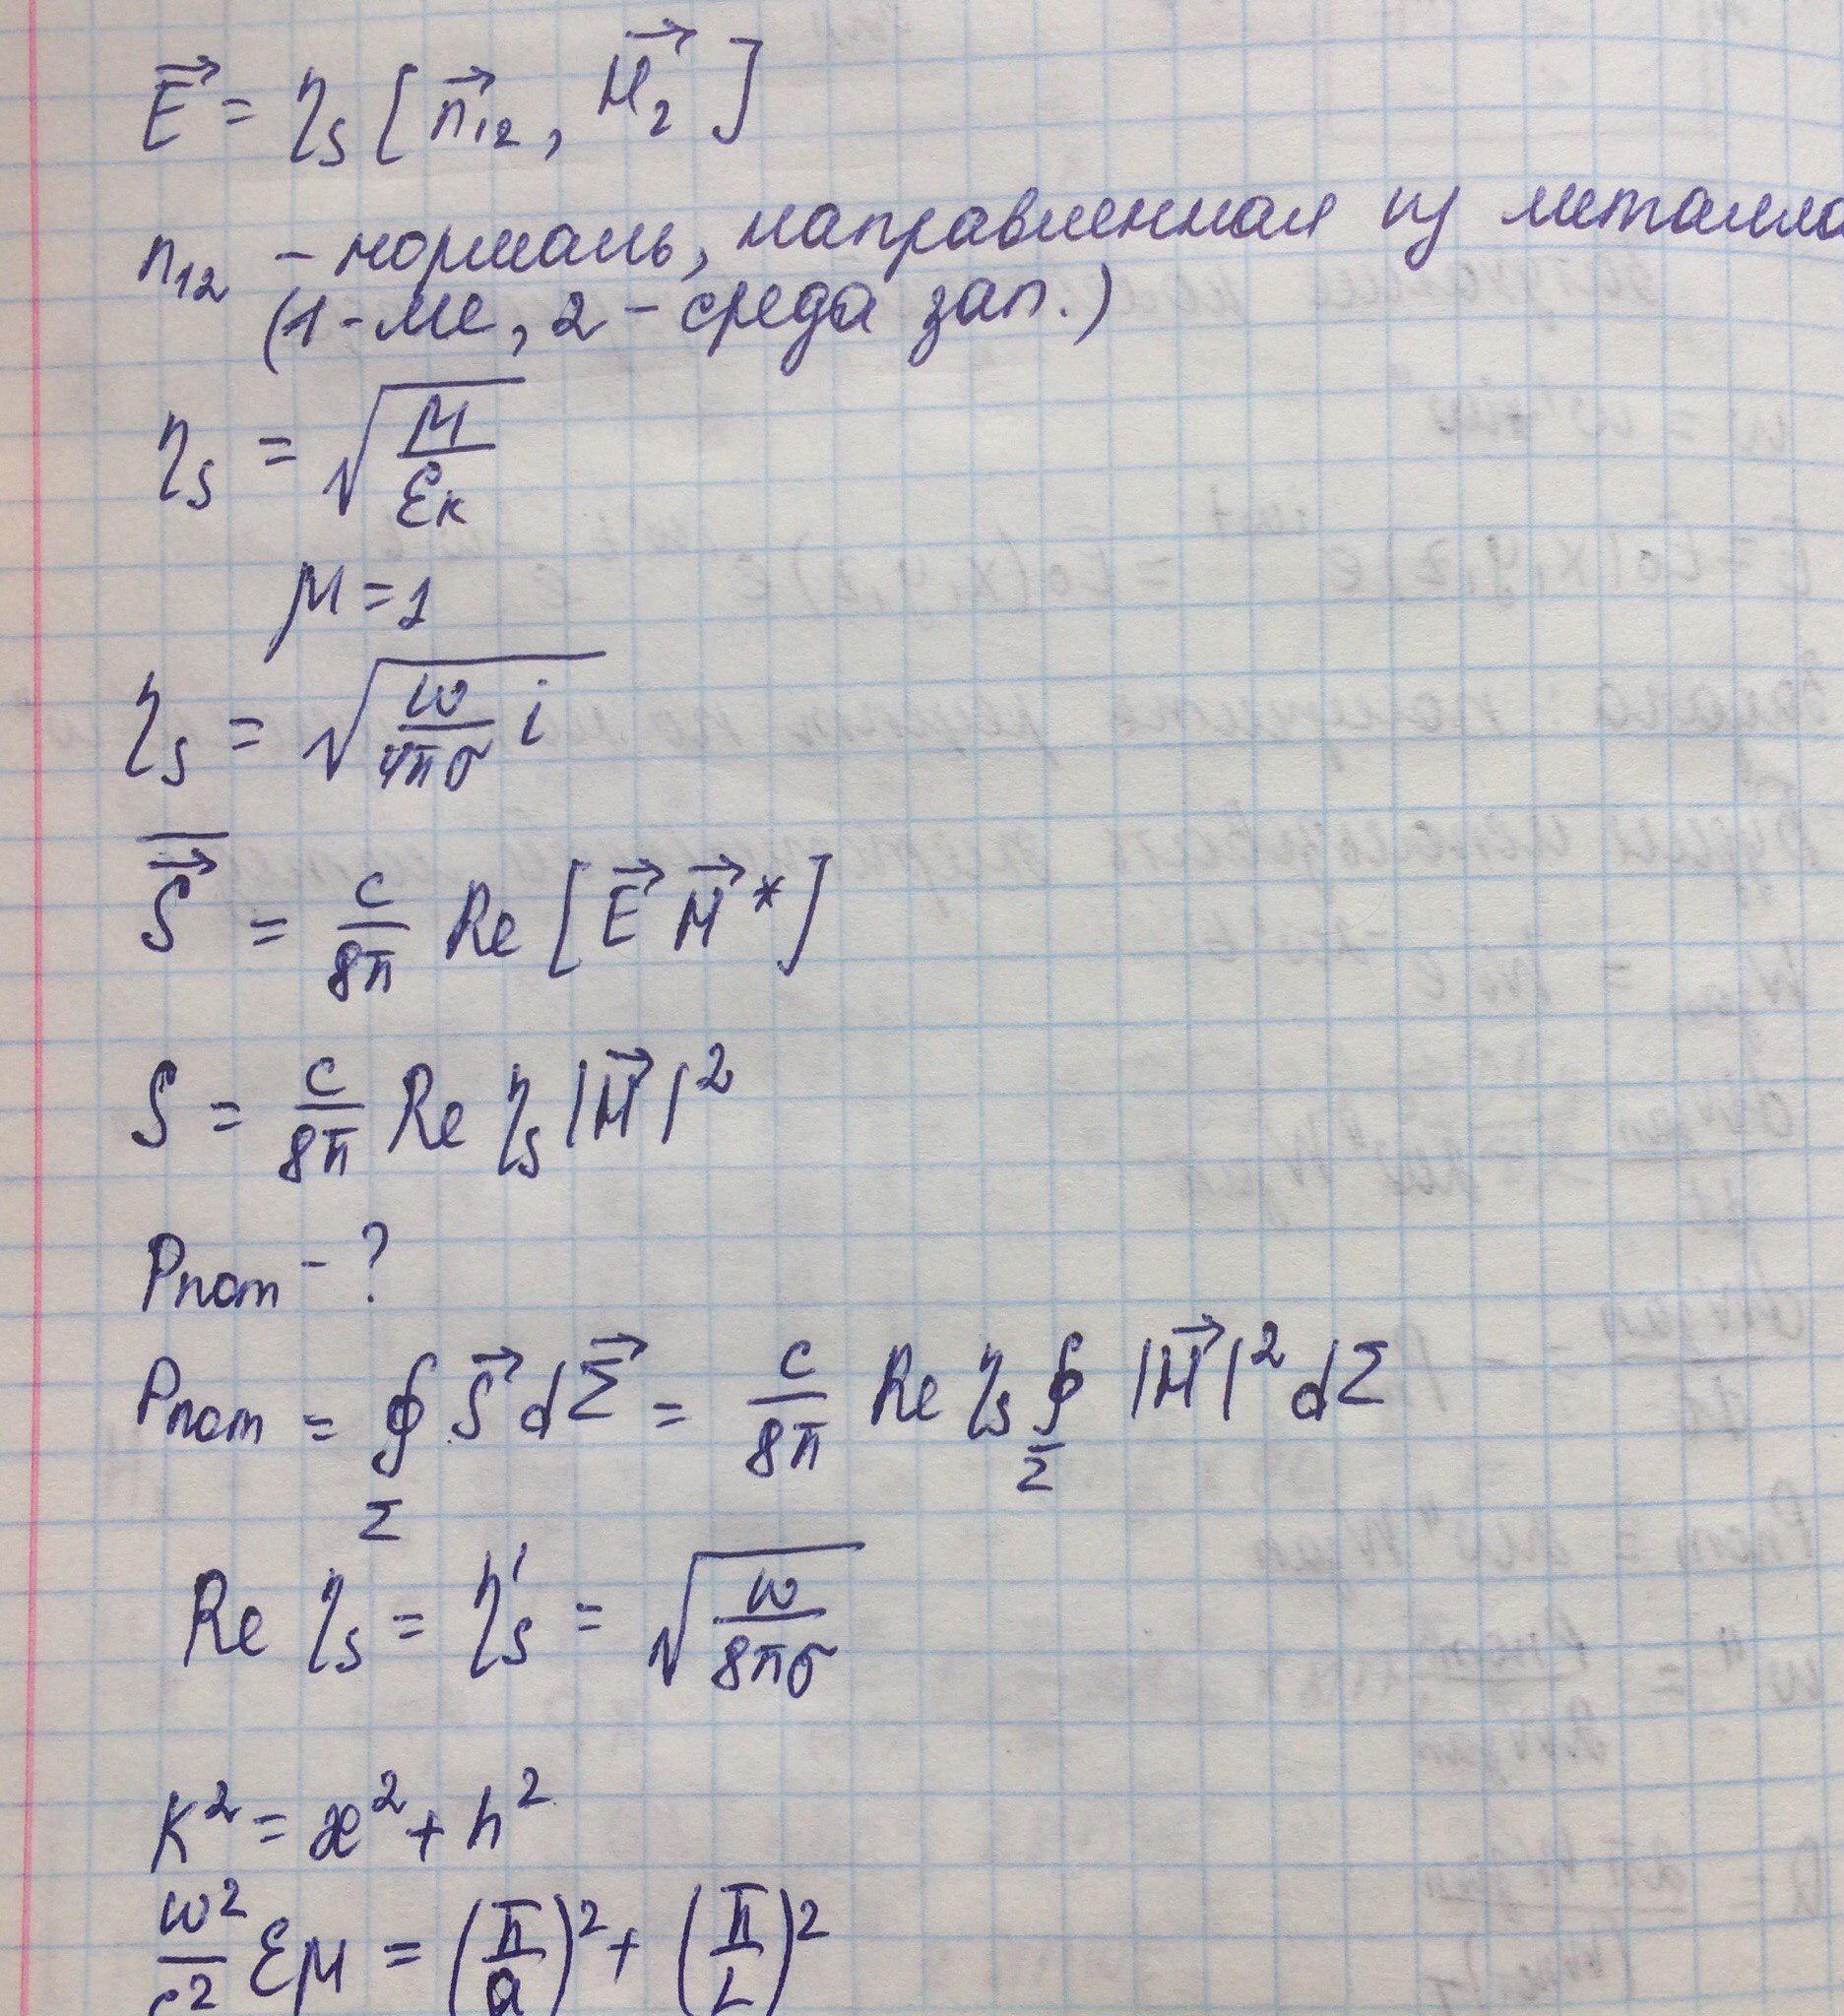 E⃗ = η_s [n⃗₁₂, H⃗₂]
n₁₂ – нормаль, направленная из металла
(1-Ме, 2 – среда зап.)
η_s = √(μ/ε_к)
μ = 1
η_s = √(ω/(4πσ) i)
S⃗̅ = c/8π Re [E⃗ H⃗*]
S = c/8π Re η_s |H⃗|²
Pпот – ?
Pпот = ∮_Σ S⃗ dΣ⃗ = c/8π Re η_s ∮_Σ |H⃗|² dΣ
Re η_s = η_s' = √(ω/8πσ)
K² = æ² + h²
ω²/c² εμ = (π/a)² + (π/L)²